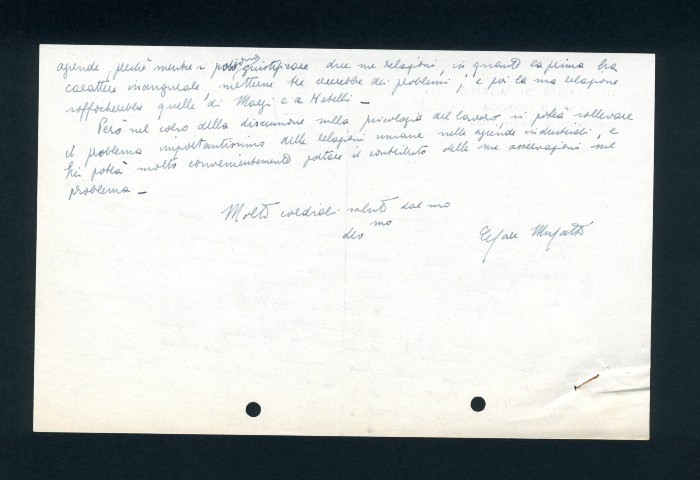 aziende, perché mentre si possono giustificare due sue relazioni, in quanto la prima ha
carattere inaugurale, metterne tre creerebbe dei problemi, e poi la sua relazione
soffocherebbe quelle di Marzi e a Metelli –
Però nel corso della discussione sulla psicologia del lavoro, si potrà sollevare
il problema importantissimo delle relazioni umane nelle aziende industriali, e
Lei potrà molto convenientemente portare il contributo delle sue osservazioni sul
problema –
Molto cordiali saluti dal suo
dev mo
Cesare Musatti